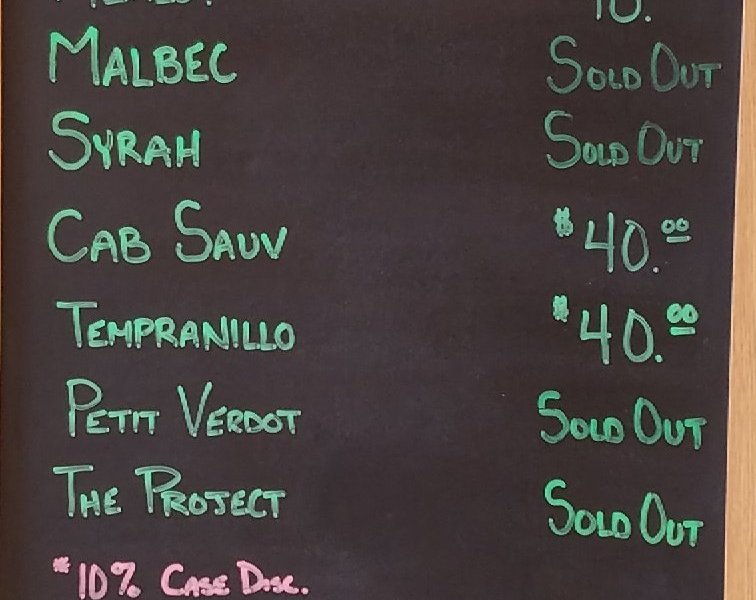 MALBEC SOLD OUT
SYRAH SOLD OUT
CAB SAUV $40.00
TEMPRANILLO $40.00
PETIT VERDOT SOLD OUT
THE PROJECT SOLD OUT
*10% CASE DISC.